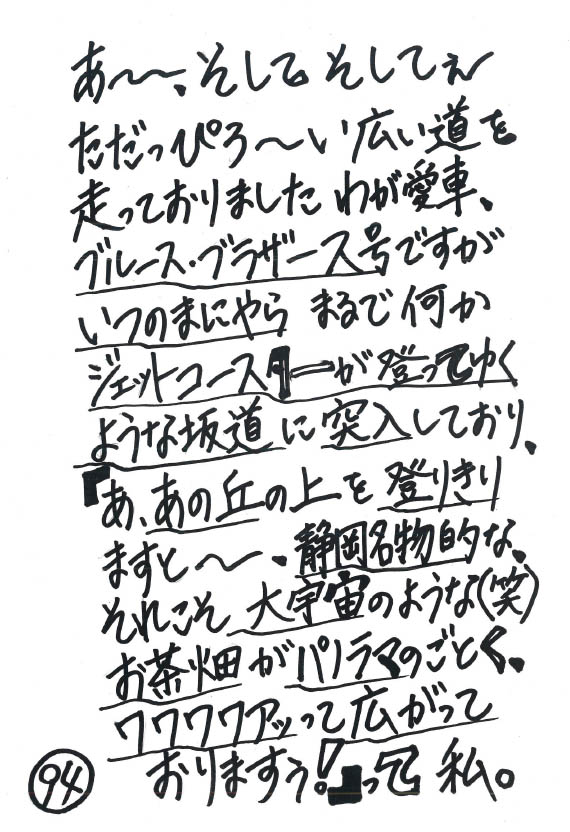 あ〜〜、そして そしてぇ〜
ただっぴろ〜い広い道を
走っておりました わが愛車、
ブルース・ブラザース号ですが
いつのまにやら まるで何か
ジェットコースターが登ってゆく
ような坂道に突入しており、
『あ、あの丘の上を登りきり
ますと〜、静岡名物的な、
それこそ大宇宙のような(笑)
お茶畑がパノラマのごとく、
ワワワワアッって広がって
おりますぅ!』って私。
94